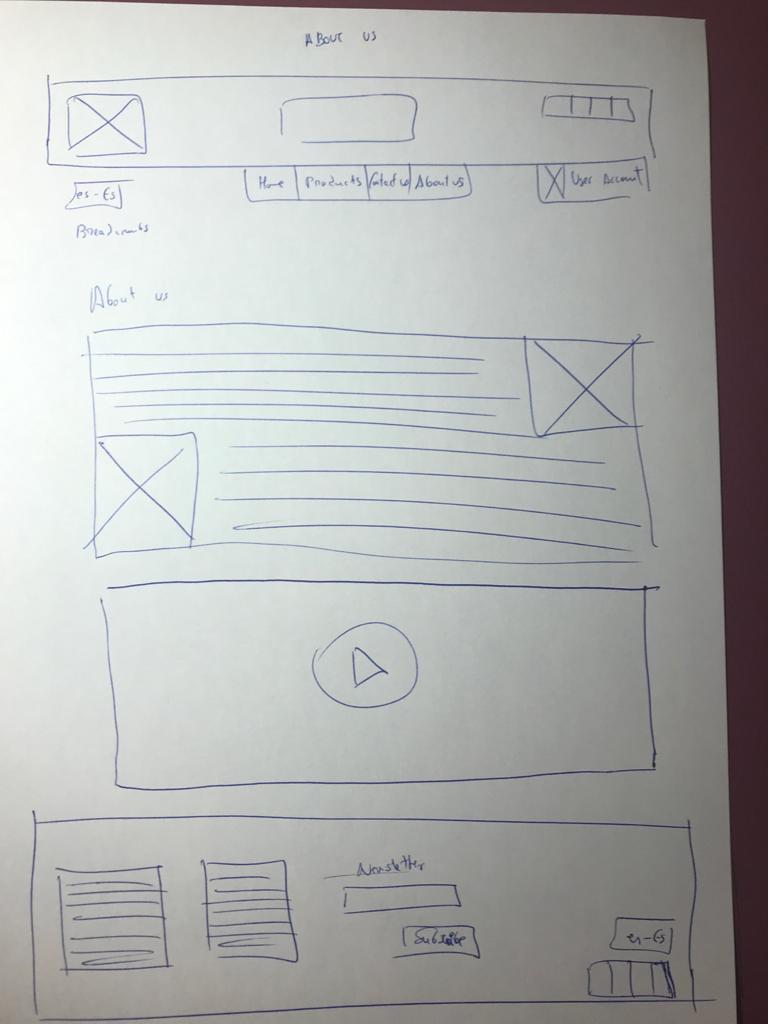 ABOUT US
Home Products Contact us About us
User Account
es-Es
Breadcrumbs
About us
Newsletter
Subscribe
es-Es